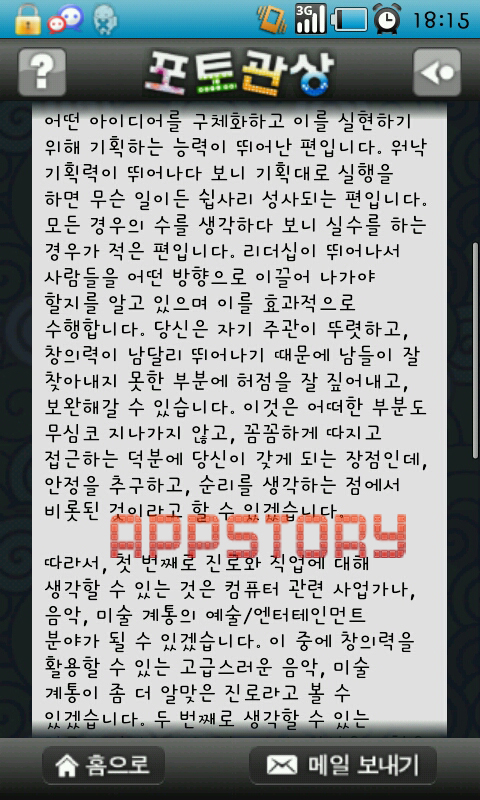 3G 18:15
? 포토관상
어떤 아이디어를 구체화하고 이를 실현하기
위해 기획하는 능력이 뛰어난 편입니다. 워낙
기획력이 뛰어나다 보니 기획대로 실행을
하면 무슨 일이든 쉽사리 성사되는 편입니다.
모든 경우의 수를 생각하다 보니 실수를 하는
경우가 적은 편입니다. 리더십이 뛰어나서
사람들을 어떤 방향으로 이끌어 나가야
할지를 알고 있으며 이를 효과적으로
수행합니다. 당신은 자기 주관이 뚜렷하고,
창의력이 남달리 뛰어나기 때문에 남들이 잘
찾아내지 못한 부분에 허점을 잘 짚어내고,
보완해갈 수 있습니다. 이것은 어떠한 부분도
무심코 지나가지 않고, 꼼꼼하게 따지고
접근하는 덕분에 당신이 갖게 되는 장점인데,
안정을 추구하고, 순리를 생각하는 점에서
비롯된 것이라고 할 수 있겠습니다.
APPSTORY
따라서, 첫 번째로 진로와 직업에 대해
생각할 수 있는 것은 컴퓨터 관련 사업가나,
음악, 미술 계통의 예술/엔터테인먼트
분야가 될 수 있겠습니다. 이 중에 창의력을
활용할 수 있는 고급스러운 음악, 미술
계통이 좀 더 알맞은 진로라고 볼 수
있겠습니다. 두 번째로 생각할 수 있는
홈으로 메일 보내기